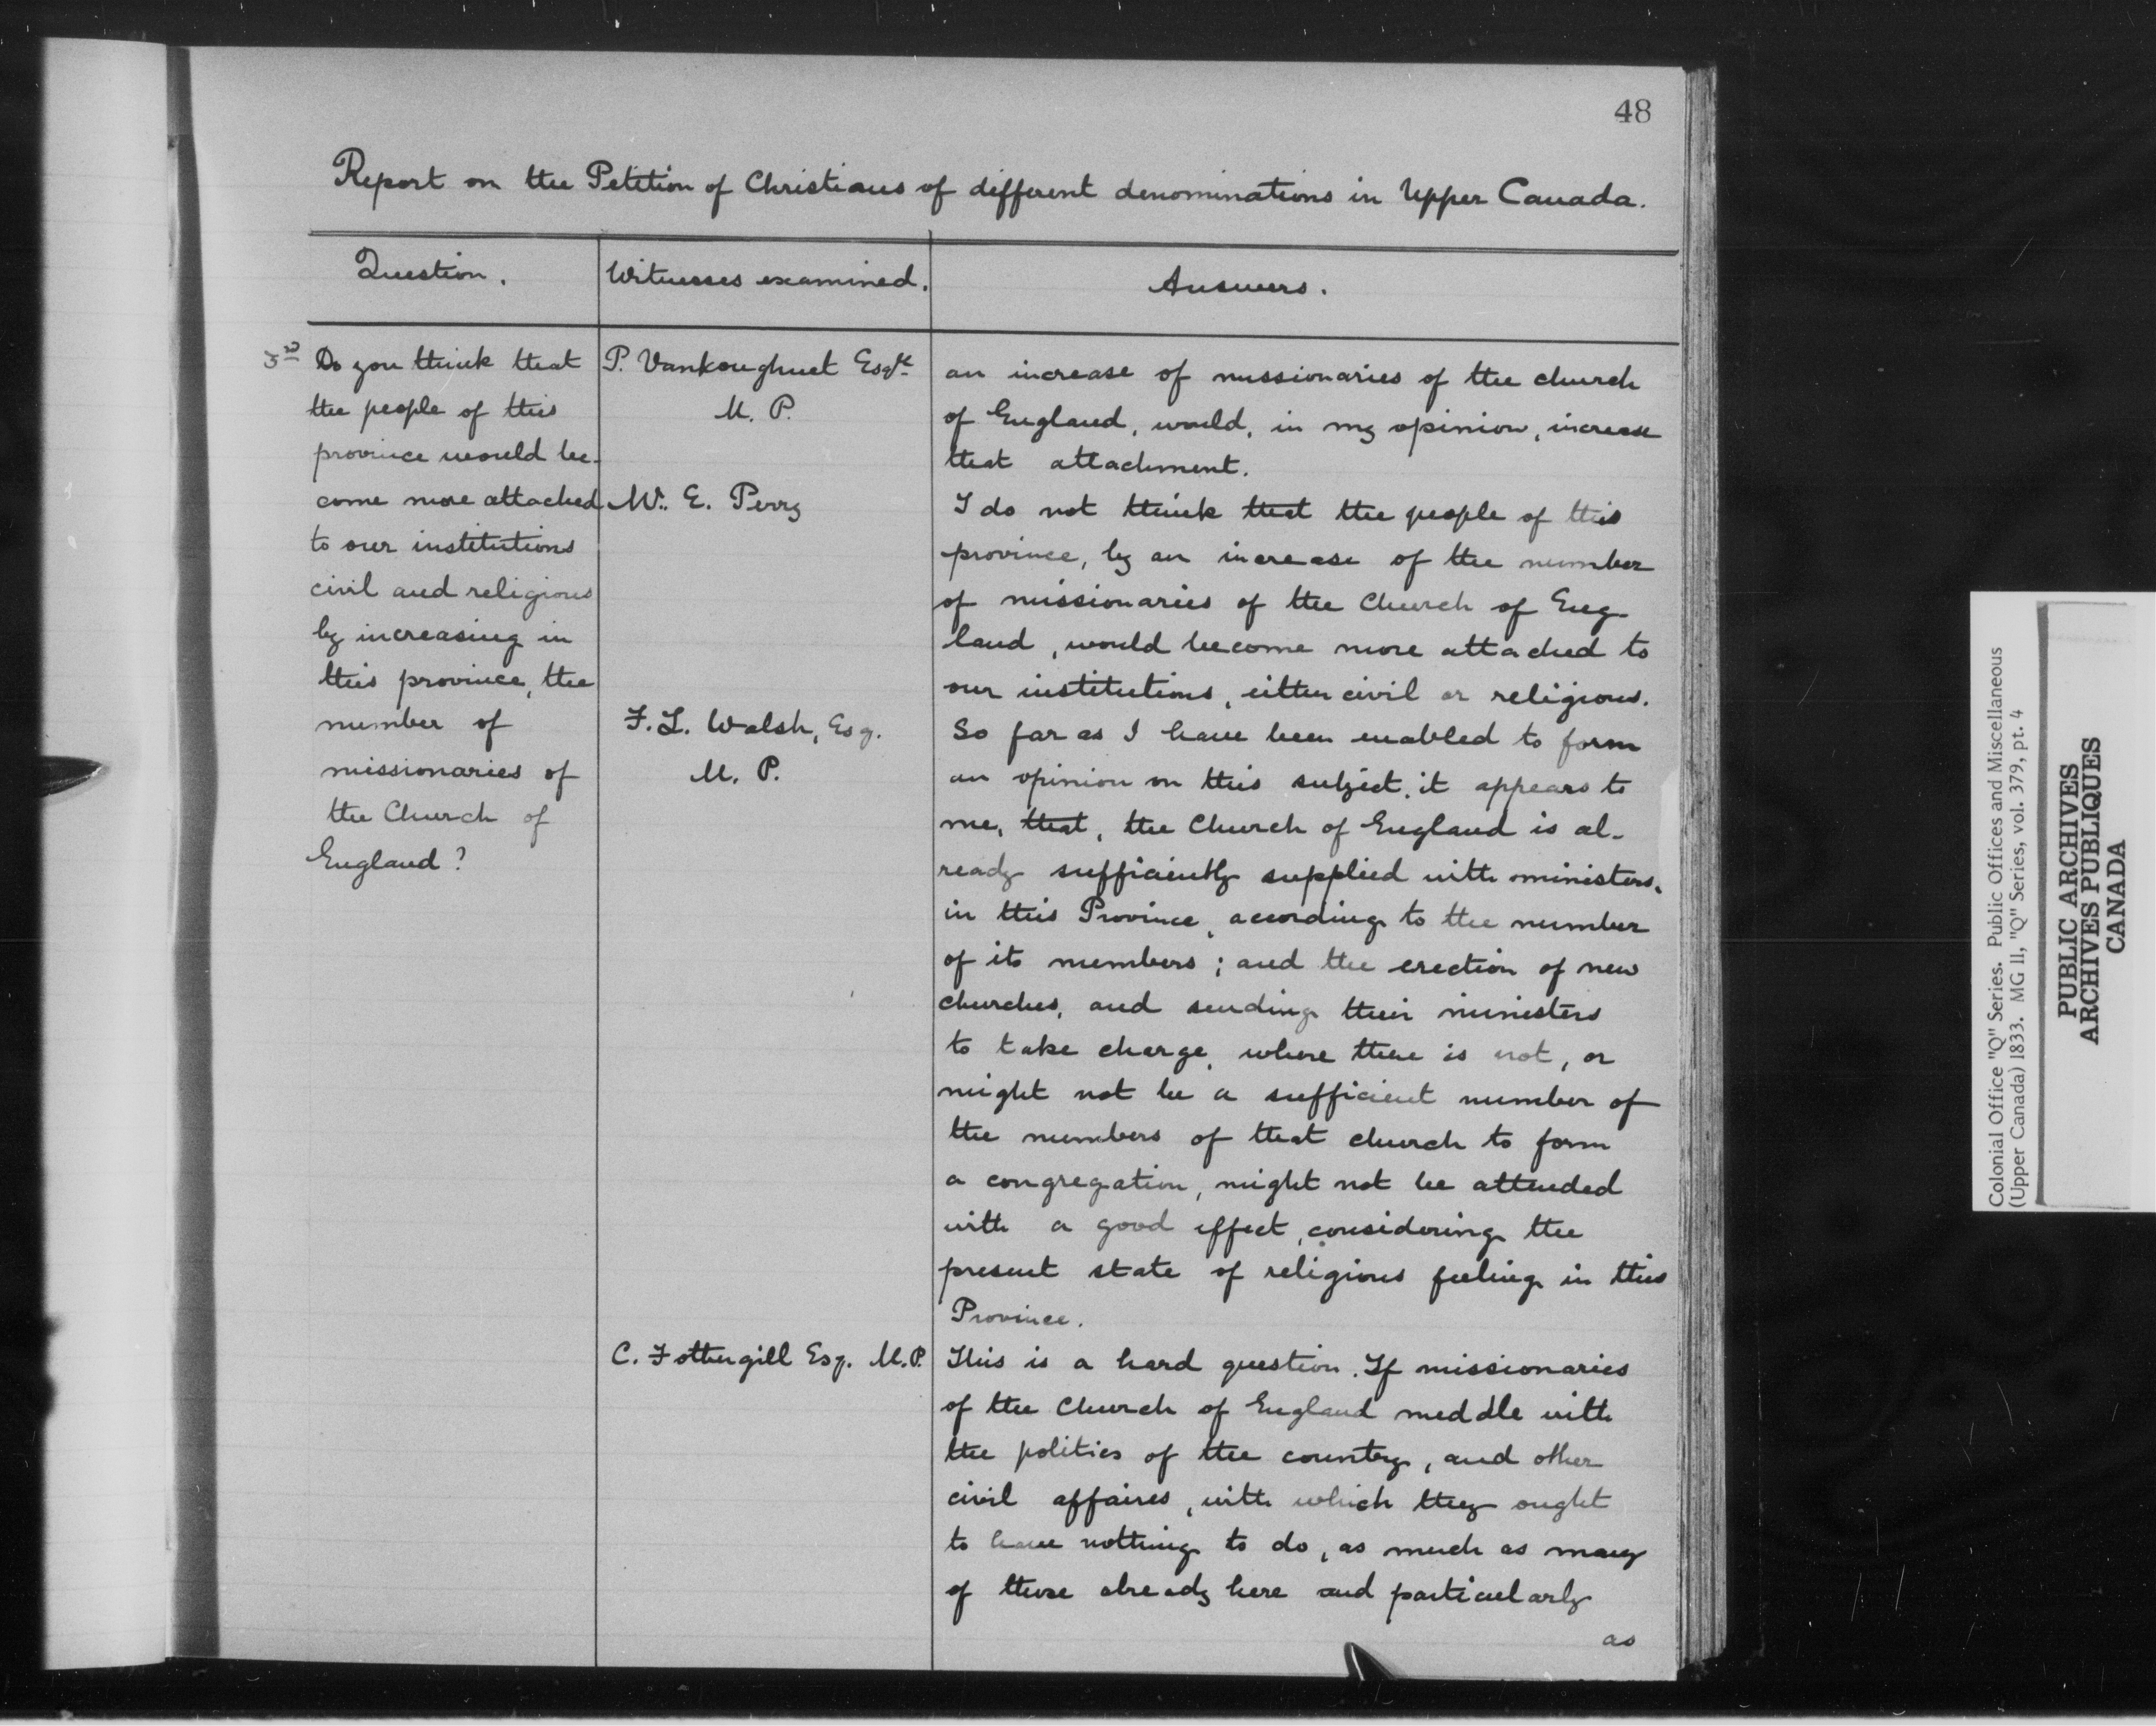 48
Report on the Petition of Christians of different denominations in Upper Canada.
Question.
Witnesses examined.
Answers.
Do you think that
the people of this
province would be-
come more attached
to our institutions
civil and religious
by increasing in
this province, the
number of
missionaries of
the Church of
England?
P. Vankoughnet Esqr.
M. P.
an increase of missionaries of the church
of England, would, in my opinion, increase
that attachment.
Mr. E. Perry
I do not think that the people of this
province, by an increase of the number
of missionaries of the Church of Eng-
land, would become more attached to
our institutions, either civil or religious.
F. L. Walsh, Esq.
M. P.
So far as I have been enabled to form
an opinion on this subject, it appears to
me, that, the Church of England is al-
ready sufficiently supplied with ministers,
in this Province, according to the number
of its members; and the erection of new
churches, and sending their ministers
to take charge, where there is not, or
might not be a sufficient number of
the members of that church to form
a congregation, might not be attended
with a good effect, considering the
present state of religious feeling in this
Province.
C. Fothergill Esq. M.P.
This is a hard question. If missionaries
of the Church of England meddle with
the politics of the country, and other
civil affaires, with which they ought
to have nothing to do, as much as many
of those already here and particularly
as
Colonial Office "Q" Series. Public Offices and Miscellaneous
(Upper Canada) 1833. MG 11, "Q" Series, vol. 379, pt. 4
PUBLIC ARCHIVES
ARCHIVES PUBLIQUES
CANADA